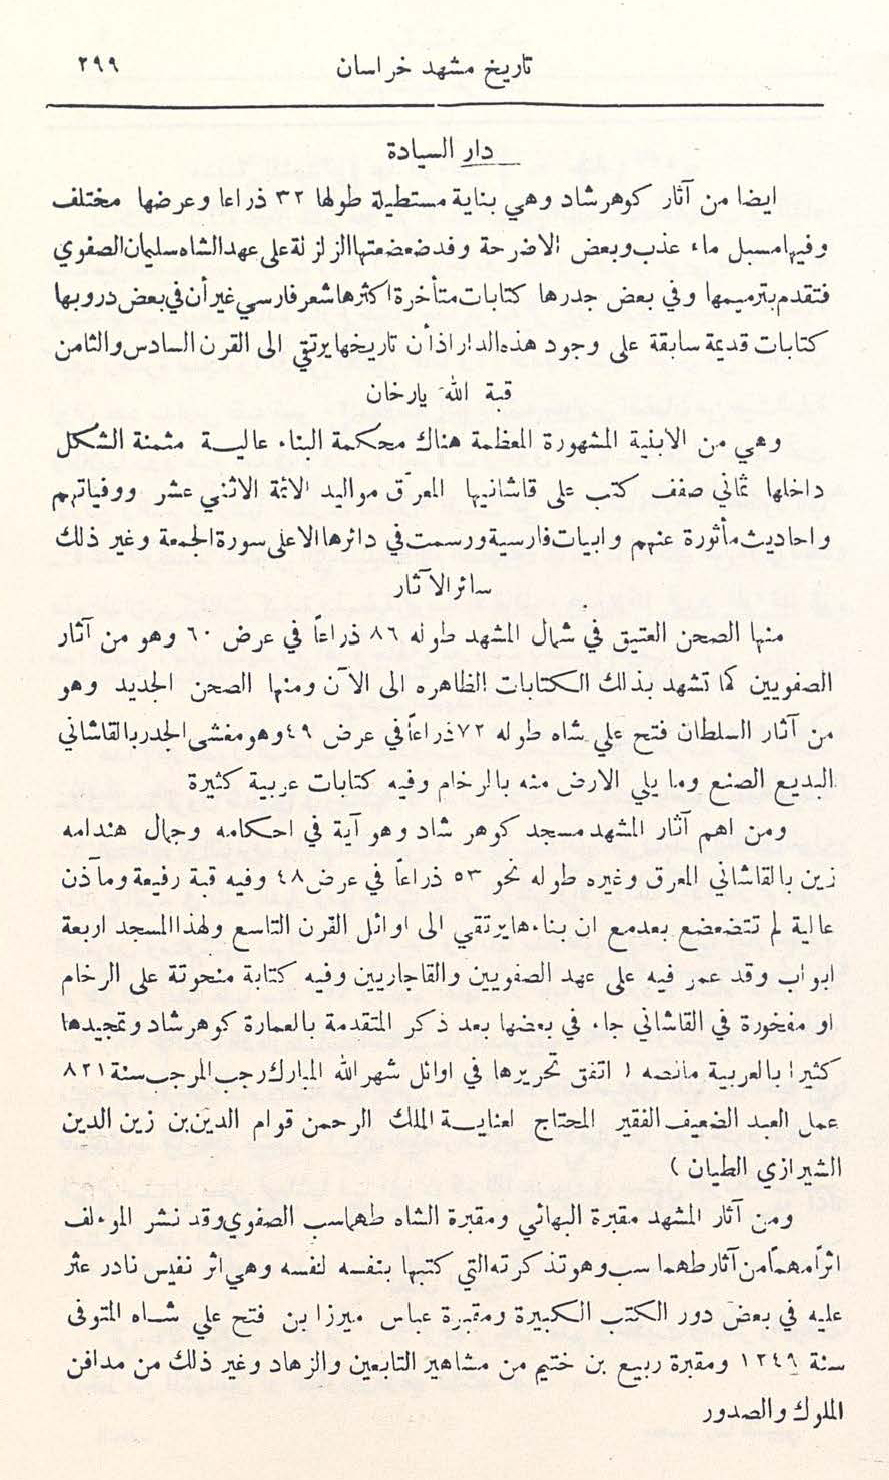 تاريخ مشهد خراسان ٢٩٩
دار السيادة
ايضا من آثار كوهرشاد وهي بناية مستطيلة طولها ٣٢ ذراعا وعرضها مختلف
وفيها مسبل ماء عذب وبعض الاضرحة وقد ضعضعتها الزلزلة على عهد الشاه سليمان الصفوي
فتقدم بترميمها وفي بعض جدرها كتابات متأخرة اكثرها شعر فارسي غير أن في بعض دروبها
كتابات قديمة سابقة على وجود هذه الدار اذ أن تاريخها يرتقي الى القرن السادس والثامن
قبة الله يارخان
وهي من الابنية المشهورة المعظمة هناك محكمة البناء عالية مثمنة الشكل
داخلها ثماني صفف كتب على قاشانيها المعرق مواليد الائمة الاثني عشر ووفياتهم
واحاديث مأثورة عنهم وابيات فارسية ورسمت في دائرها الاعلى سورة الجمعة وغير ذلك
سائر الآثار
منها الصحن العتيق في شمال المشهد طوله ٨٦ ذراعاً في عرض ٦٠ وهو من آثار
الصفويين كما تشهد بذلك الكتابات الظاهره الى الآن ومنها الصحن الجديد وهو
من آثار السلطان فتح علي شاه طوله ٧٢ ذراعاً في عرض ٤٩ وهو مغشى الجدر بالقاشاني
البديع الصنع وما يلي الارض منه بالرخام وفيه كتابات عربية كثيرة
ومن اهم آثار المشهد مسجد كوهر شاد وهو آية في احكامه وجمال هندامه
زين بالقاشاني المعرق وغيره طوله نحو ٥٣ ذراعاً في عرض ٤٨ وفيه قبة رفيعة ومآذن
عالية لم تتضعضع بعد مع ان بناءها يرتقي الى اوائل القرن التاسع ولهذا المسجد اربعة
ابواب وقد عمر فيه على عهد الصفويين والقاجاريين وفيه كتابة منحوتة على الرخام
او مفخورة في القاشاني جاء في بعضها بعد ذكر المتقدمة بالعمارة كوهرشاد وتمجيدها
كثيرا بالعربية مانصه ( اتفق تحريرها في اوائل شهر الله المبارك رجب المرجب سنة ٨٢١
عمل العبد الضعيف الفقير المحتاج لعناية الملك الرحمن قوام الدين بن زين الدين
الشيرازي الطيان )
ومن آثار المشهد مقبرة البهائي ومقبرة الشاه طهماسب الصفوي وقد نشر المؤلف
اثراً مهماً من آثار طهماسب وهو تذكرته التي كتبها بنفسه لنفسه وهي اثر نفيس نادر عثر
عليه في بعض دور الكتب الكبيرة ومقبرة عباس ميرزا بن فتح علي شاه المتوفى
سنة ١٢٤٩ ومقبرة ربيع بن ختيم من مشاهير التابعين والزهاد وغير ذلك من مدافن
الملوك والصدور